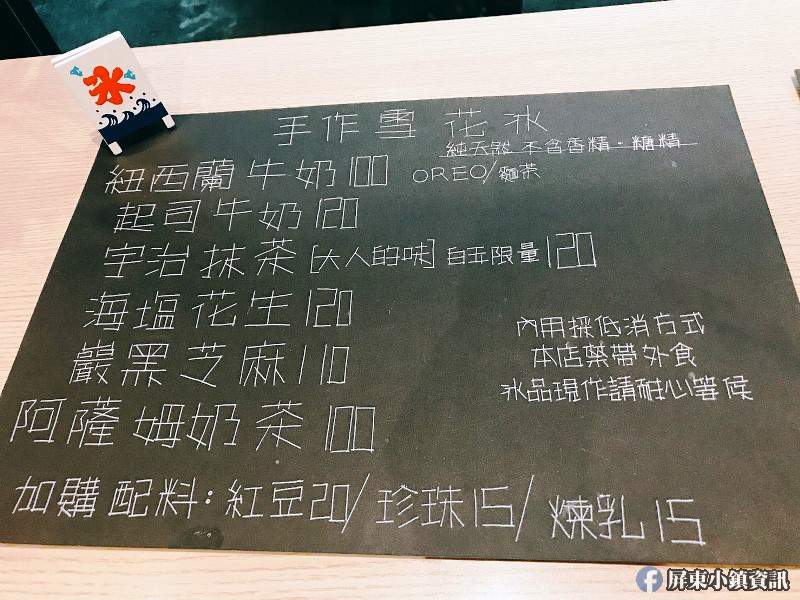 氷
手作雪花冰
純天然 不含香精・糖精
紐西蘭牛奶100 OREO/麵茶
起司牛奶120
宇治抹茶[大人的味]白玉限量120
海塩花生120
巖黑芝麻110
阿薩姆奶茶100
內用採低消方式
本店禁帶外食
冰品現作請耐心等候
加購配料:紅豆20/珍珠15/煉乳15
屏東小鎮資訊